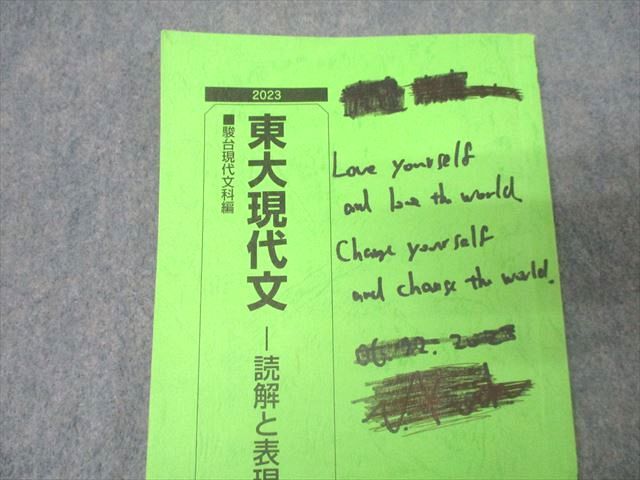 2023
■駿台現代文科編
東大現代文
―読解と表現
Love yourself
and love the world.
Change yourself
and change the world.